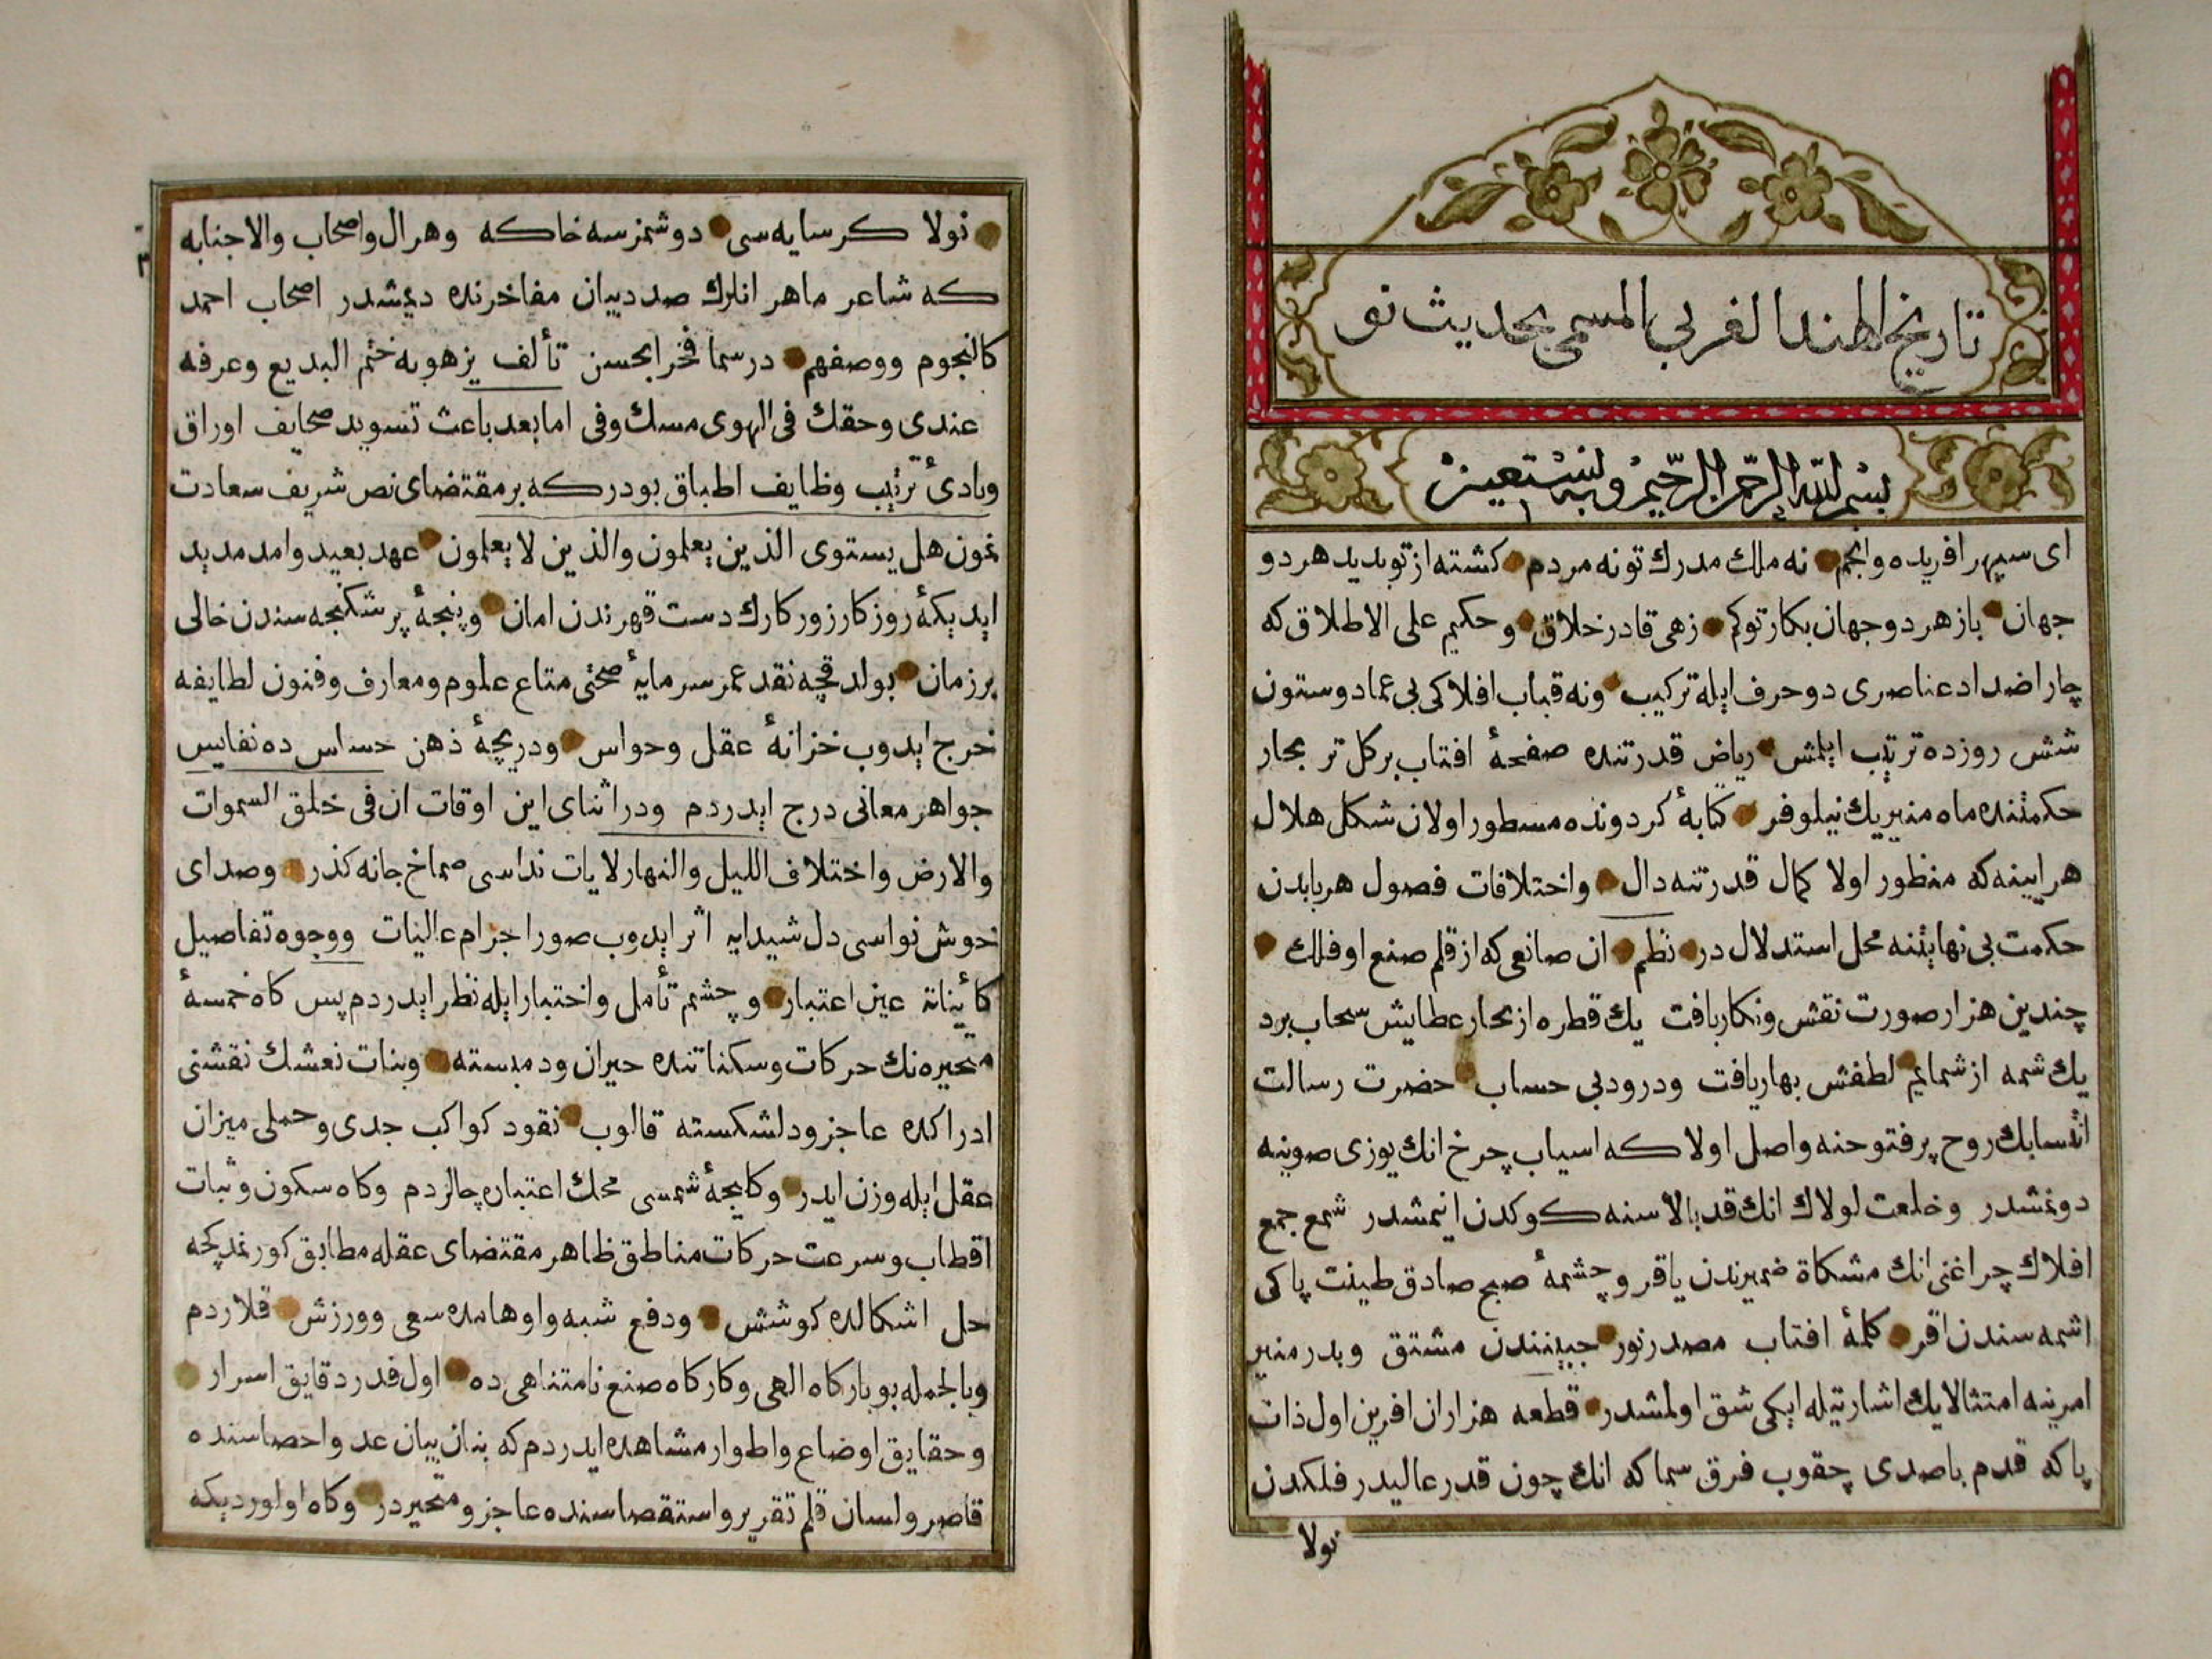 تاريخ الهند الغربي المسمى بحديث نو
بسم الله الرحمن الرحيم وبه نستعين
اى سپهر افريده وانجم نه ملك مدرك تونه مردم كشته از توبديد هر دو
جهان باز هر دو جهان بكار توكم زهى قادر خلاق وحكيم على الاطلاق كه
چار اضداد عناصرى دو حرف ايله تركيب ونه قباب افلاكى بى عماد وستون
شش روزده ترتيب ايلمش رياض قدرتنده صفحهٔ افتاب بركل تر بحار
حكمتنده ماه منير يك نيلوفر كتابهٔ كردونده مسطور اولان شكل هلال
هرايينه كه منظور اولا كمال قدرتنه دال واختلافات فصول هربابدن
حكمت بى نهايتنه محل استدلال در نظم ان صانعى كه از قلم صنع او فلك
چندين هزار صورت نقش ونكار يافت يك قطره از بحار عطايش سحاب برد
يك شمه از شمايم لطفش بهار يافت ودرود بى حساب حضرت رسالت
انتسابك روح پرفتوحنه واصل اولا كه اسياب چرخ انك يوزى صوينه
دونمشدر وخلعت لولاك انك قد بالاسنه كوكدن انيمشدر شمع جمع
افلاك چراغنى انك مشكاة ضميرندن ياقر وچشمهٔ صبح صادق طينت پاكى
اشمه سندن اقر كلمهٔ افتاب مصدر نور جبينندن مشتق وبدر منير
امرينه امتثالا يك اشارتيله ايكى شق اولمشدر قطعه هزاران افرين اول ذات
پاكه قدم باصدى چقوب فرق سماكه انك چون قدر عاليدر فلكدن
نولا
نولا كر سايه سى دوشمزسه خاكه وهر ال واصحاب والاجنابه
كه شاعر ماهر انلرك صدد بيان مفاخرنده ديمشدر اصحاب احمد
كالنجوم ووصفهم در سما فخرا بحسن تألف يزهو به ختم البديع وعرفه
عندى وحقك فى الهوى مسك وفى اما بعد باعث تسويد صحايف اوراق
وبادئ ترتيب وظايف اطباق بودر كه بر مقتضاى نص شريف سعادت
نمون هل يستوى الذين يعلمون والذين لا يعلمون عهد بعيد وامد مديد
ايديكه روزكار زوركارك دست قهرندن امان وپنجهٔ پر شكنجه سندن خالى
بر زمان بولدقجه نقد عمر سرمايهٔ صحتى متاع علوم ومعارف وفنون لطايفه
خرج ايدوب خزانهٔ عقل وحواس ودريچهٔ ذهن حساس ده نفايس
جواهر معانى درج ايدردم ودر اثناى اين اوقات ان فى خلق السموات
والارض واختلاف الليل والنهار لايات نداسى صماخ جانه كذر وصداى
خوش نواسى دل شيدايه اثر ايدوب صور اجرام عاليات ووجوه تفاصيل
كائيناته عين اعتبار وچشم تأمل واختبار ايله نظر ايدردم پس كاه خمسهٔ
متحيره نك حركات وسكناتنده حيران ودمبسته وبنات نعشك نقشنى
ادراكده عاجز ودلشكسته قالوب نقود كواكب جدى وحملى ميزان
عقل ايله وزن ايدر وكايجهٔ شمسى محك اعتباره چالردم وكاه سكون وثبات
اقطاب وسرعت حركات مناطق ظاهر مقتضاى عقله مطابق كورنمديكجه
حل اشكالده كوشش ودفع شبه واوهامده سعى وورزش قلاردم
وبالجمله بو باركاه الهى وكاركاه صنع نامتناهى ده اول قدر دقايق اسرار
وحقايق اوضاع واطوار مشاهده ايدردم كه بنان بيان عد واحصاسنده
قاصر ولسان قلم تقرير واستقصاسنده عاجز ومتحيردر وكاه اولورديكه